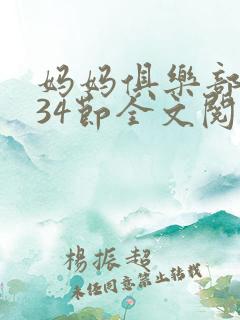 妈妈俱樂部
34節全文閱
楊振超
未任同意禁止转载